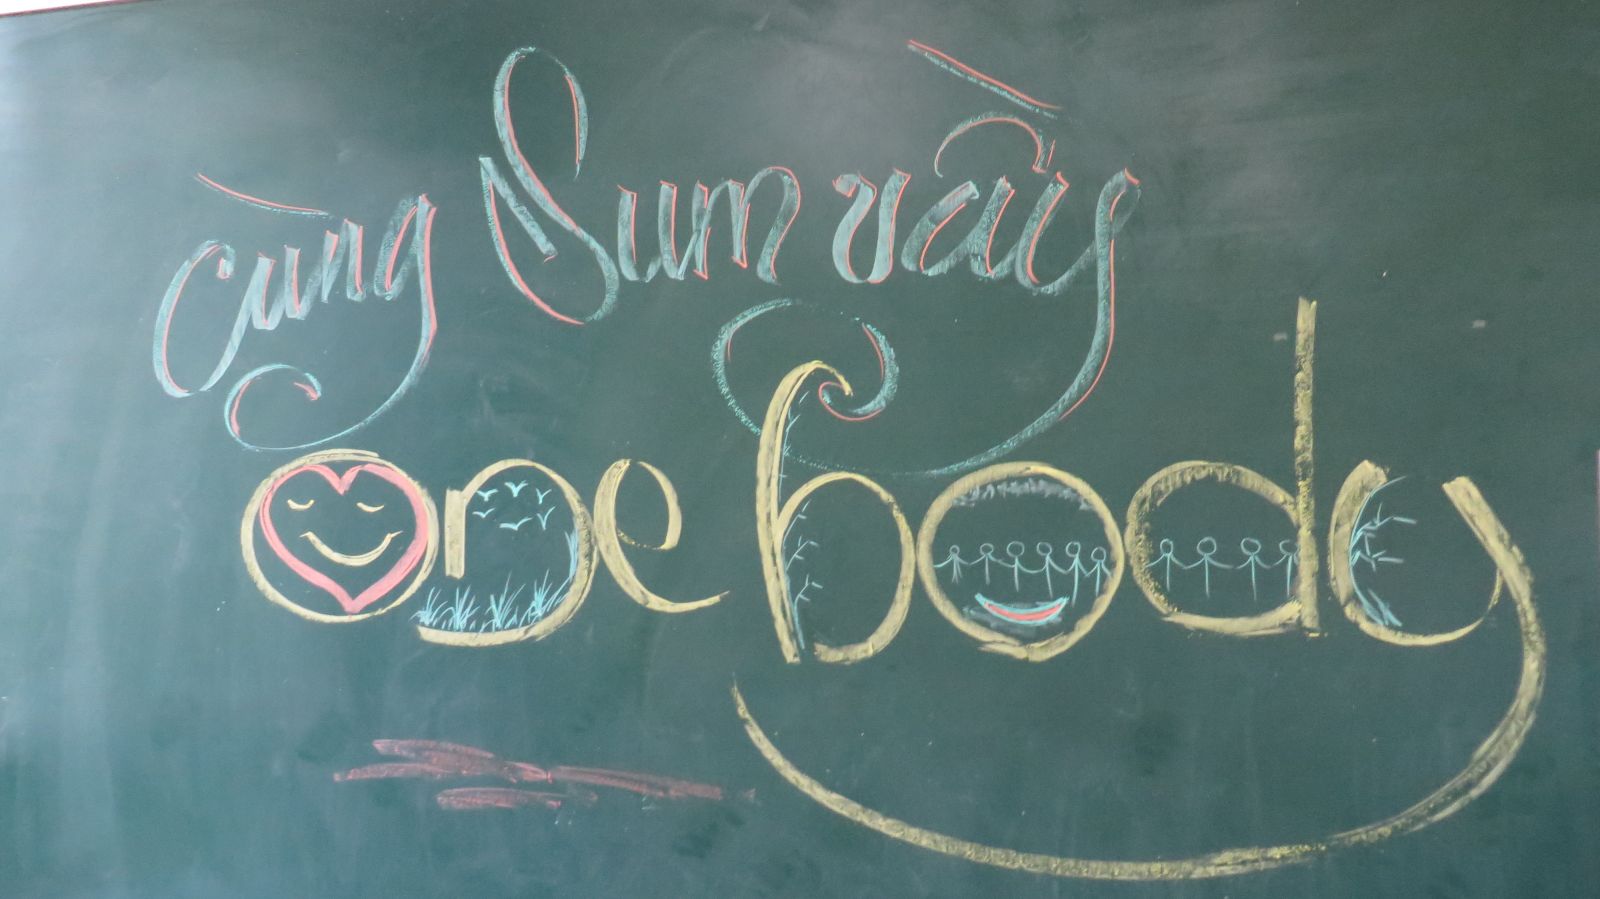 cùng Sum vầy
one body